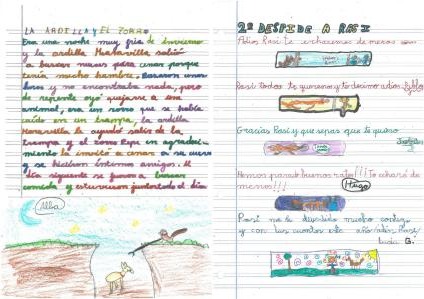 LA ARDILLA Y EL ZORRO
Era una noche muy fria de invierno
y la ardilla Maravilla salió
a buscar nueces para cenar porque
tenía mucho hambre. Pasaron
horas y no encontraba nada, pero
de repente oyó quejarse a un
animal, era un zorro que se había
caído en un trampa, la ardilla
Maravilla le ayudó salir de la
trampa y el zorro Pepe en agradeci-
miento la invitó a cenar a su cueva
y se hicieron intensos amigos. Al
día siguiente se fueron a buscar
comida y estuvieron juntos todo el día.
Alba
2º DESPIDE A RASI
Adios Rasi te echaremos de menos
Rasi todos te queremos y te decimos adios. Pablo
Gracias Rasi y que sepas que te quiero
Hemos pasado buenos ratos!!! Te echaré de
menos!!!
Hugo
Rasi me he divertido mucho contigo
y con tus cuentos este año ¡adios Rasi!
Lucía G.